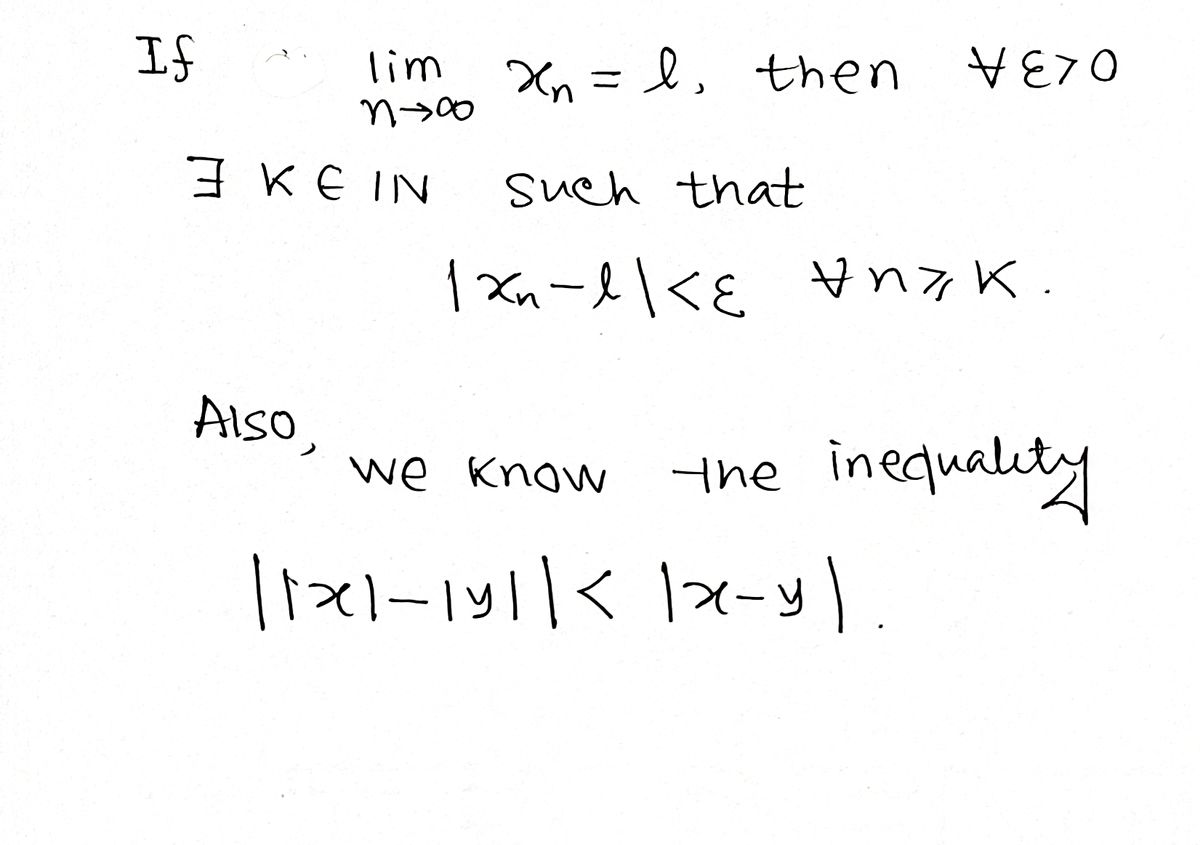 If lim n→∞ xₙ = l, then ∀ ε>0
∃ K ∈ IN such that
|xₙ-l|<ε ∀n⩾K.
Also,
we know the inequality
||x|-|y||< |x-y|.